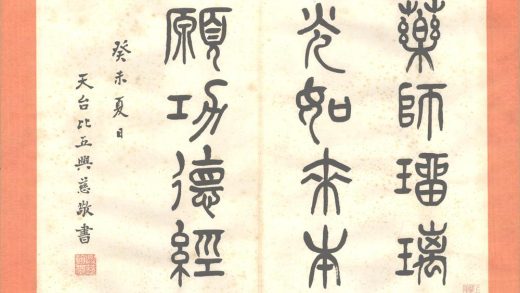 藥師璢璃
光如來本
願功德經
癸未夏日
天台比丘興慈敬書